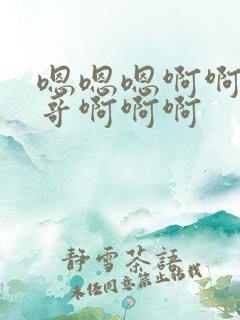 嗯嗯嗯啊啊
哥啊啊啊
静雪茶語
未经同意禁止转载